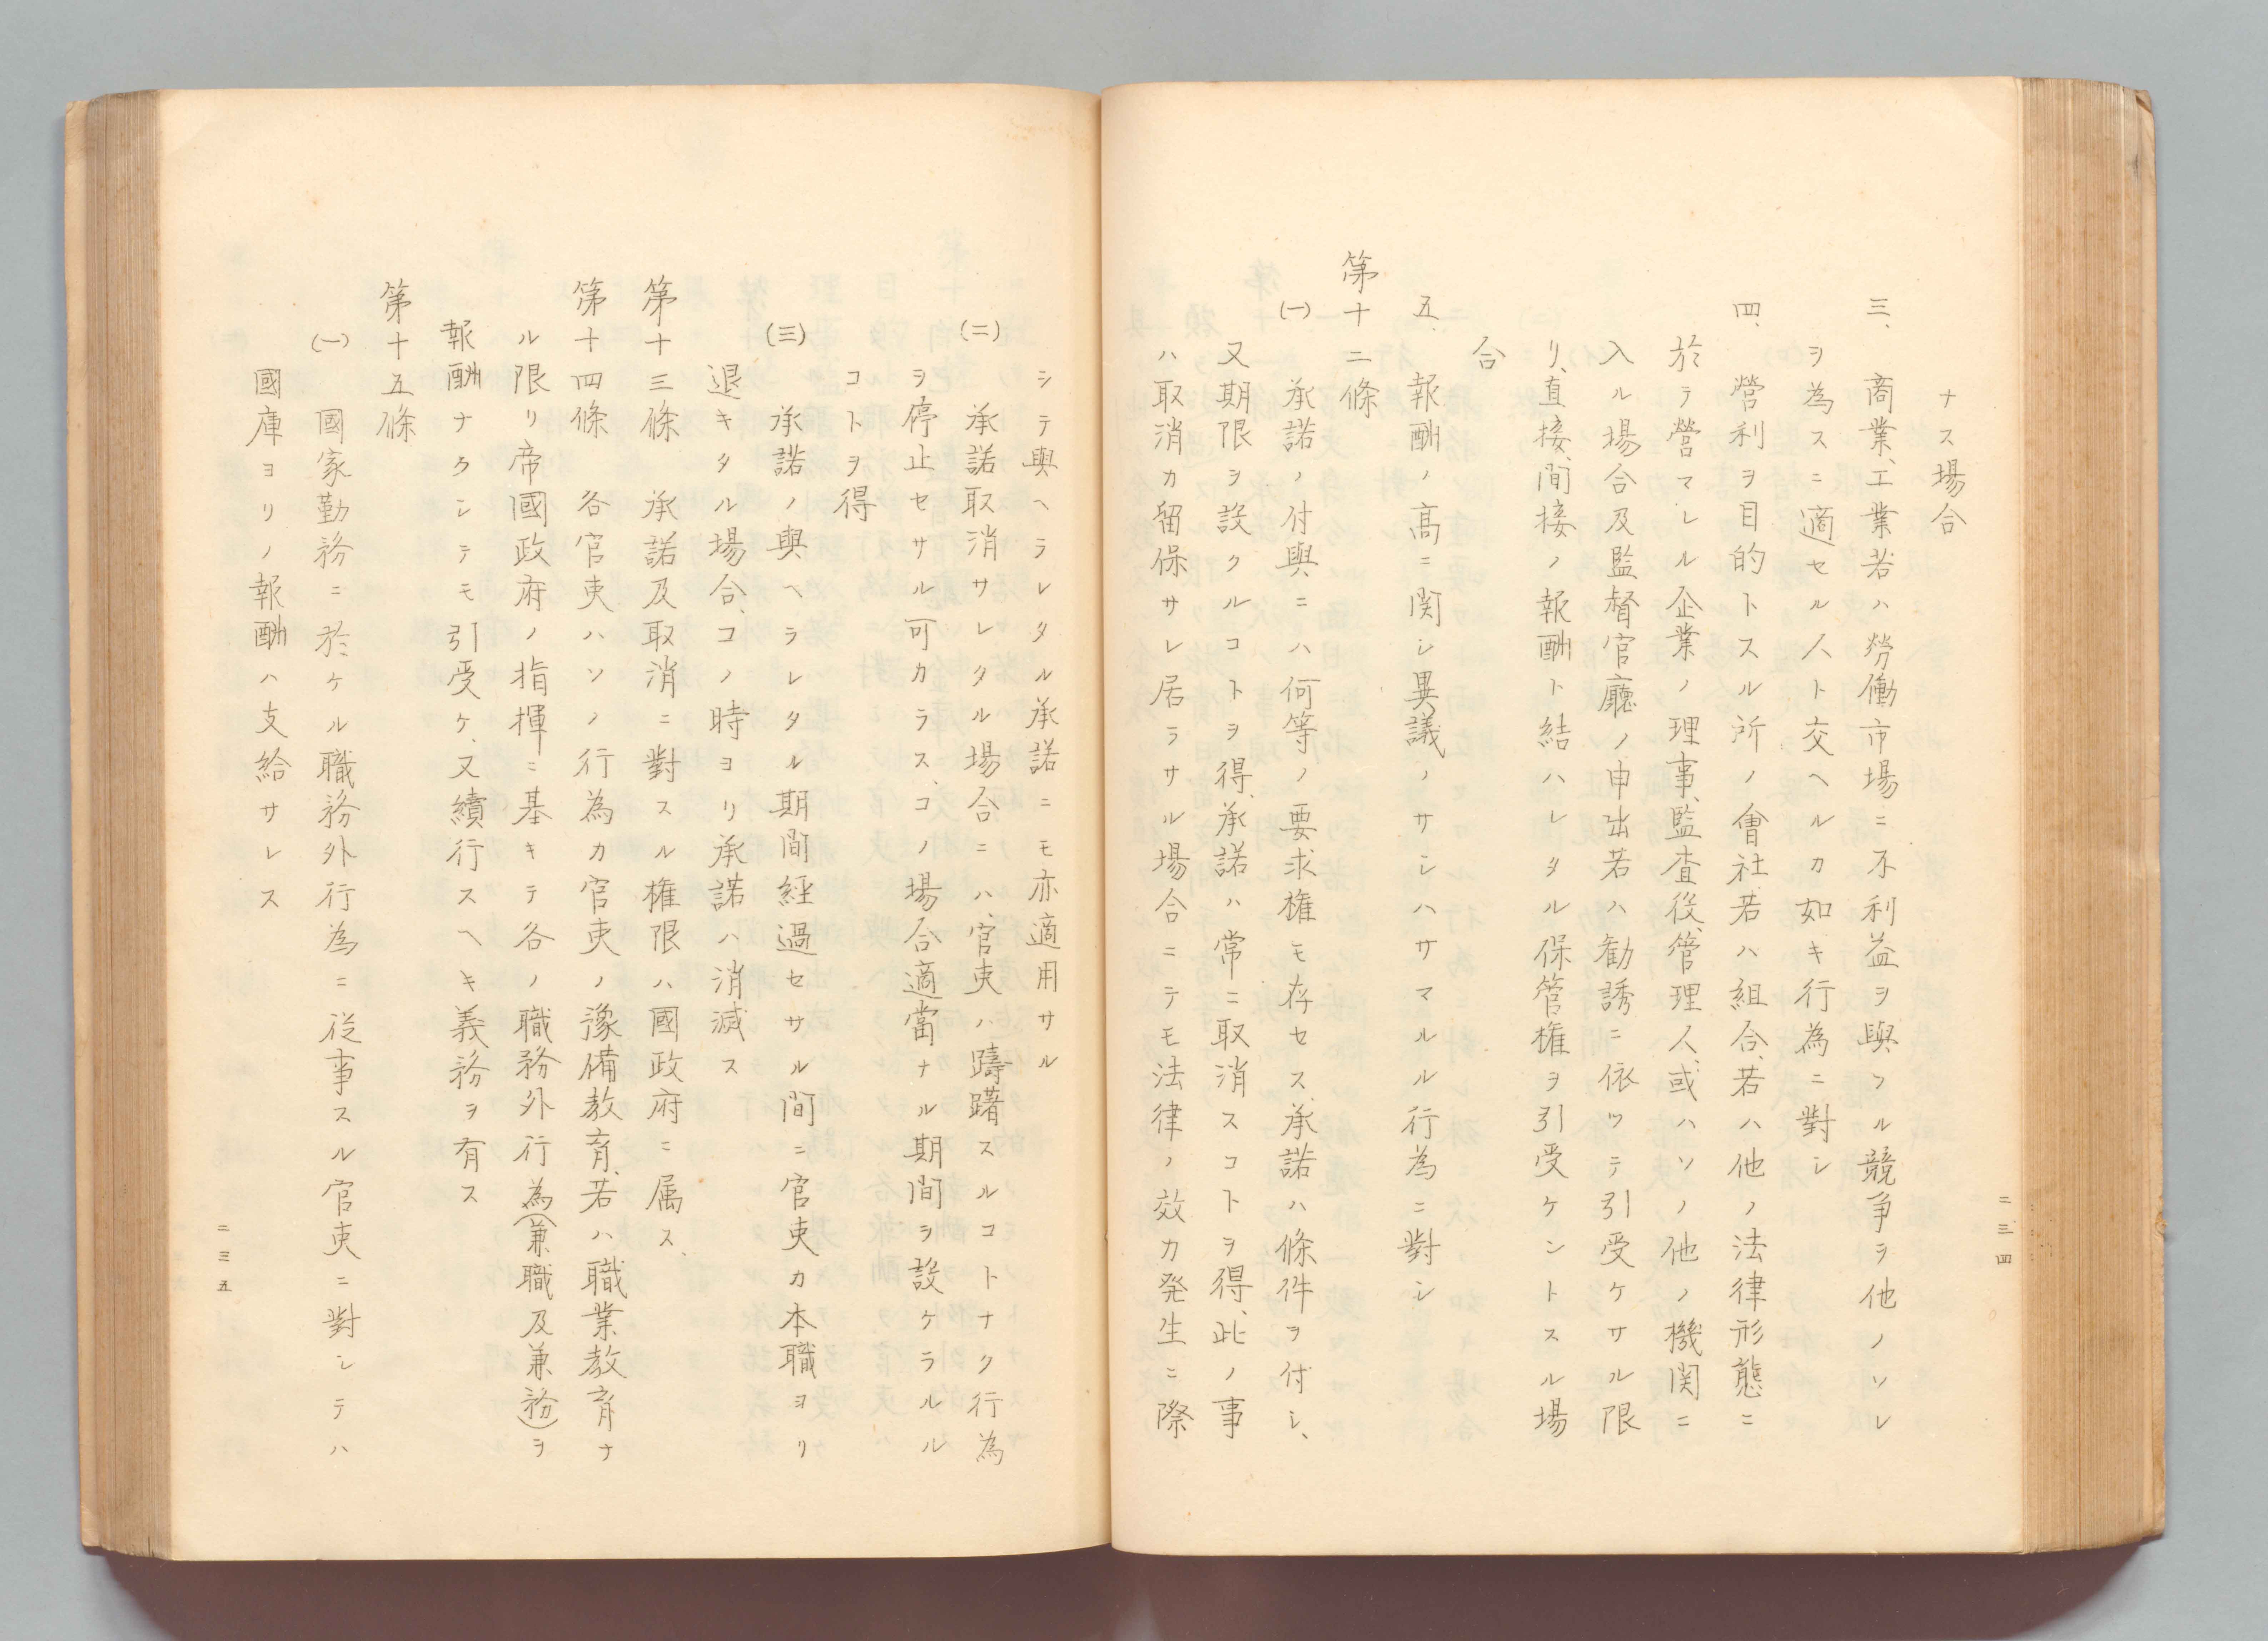 ナス場合
三、商業、工業若ハ勞働市場ニ不利益ヲ與フル競争ヲ他ノソレ
ヲ為スニ適セル人ト交ヘルカ如キ行為ニ對シ
四、營利ヲ目的トスル所ノ會社若ハ組合、若ハ他ノ法律形態ニ
於テ營マレル企業ノ理事、監査役、管理人、或ハソノ他ノ機関ニ
入ル場合及監督官廳ノ申出若ハ勧誘ニ依ツテ引受ケサル限
リ、直接、間接ノ報酬ト結ハレタル保管権ヲ引受ケントスル場
合
五、報酬ノ高ニ関シ異議ノサシハサマルル行為ニ對シ
第十二條
(一)承諾ノ付與ニハ何等ノ要求権モ存セス、承諾ハ條件ヲ付シ、
又期限ヲ設クルコトヲ得、承諾ハ常ニ取消スコトヲ得、此ノ事
ハ取消カ留保サレ居ラサル場合ニテモ法律ノ效力発生ニ際
二三四
シテ與ヘラレタル承諾ニモ亦適用サル
(二)承諾取消サレタル場合ニハ、官吏ハ躊躇スルコトナク行為
ヲ停止セサル可カラス、コノ場合適當ナル期間ヲ設ケラルル
コトヲ得
(三)承諾ノ與ヘラレタル期間経過セサル間ニ官吏カ本職ヨリ
退キタル場合、コノ時ヨリ承諾ハ消滅ス
第十三條 承諾及取消ニ對スル権限ハ國政府ニ属ス、
第十四條 各官吏ハソノ行為カ官吏ノ豫備教育、若ハ職業教育ナ
ル限リ帝國政府ノ指揮ニ基キテ各ノ職務外行為(兼職及兼務)ヲ
報酬ナクシテモ引受ケ、又續行スヘキ義務ヲ有ス
第十五條
(一)國家勤務ニ於ケル職務外行為ニ從事スル官吏ニ對シテハ
國庫ヨリノ報酬ハ支給サレス
二三五